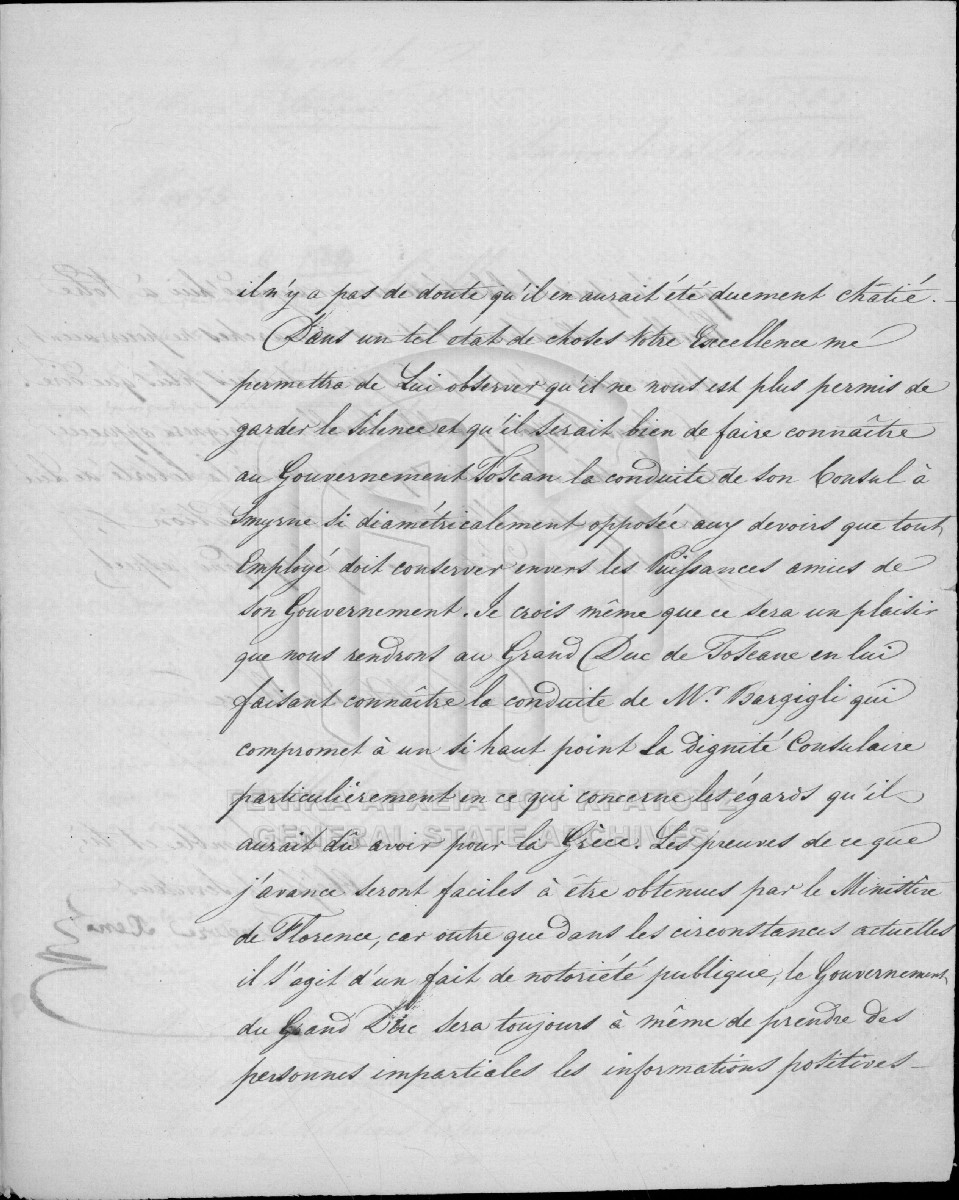 il n'y a pas de doute qu'il en aurait été duement chatié. _
Dans un tel etat de choses Votre Excellence me
permettra de Lui observer qu'il ne nous est plus permis de
garder le silence et qu'il serait bien de faire connaître
au Gouvernement Toscan la conduite de son Consul à
Smyrne si diamétricalement opposée aux devoirs que tout
Employé doit conserver envers les Puissances amies de
son Gouvernement. Je crois même que ce sera un plaisir
que nous rendrons au Grand Duc de Toscane en lui
faisant connaître la conduite de Mr. Bargigli qui
compromet à un si haut point la dignité Consulaire
particulièrement en ce qui concerne les égards qu'il
aurait du avoir pour la Grèce. Les preuves de ce que
j'avance seront faciles à être obtenues par le Ministère
de Florence, car outre que dans les circonstances actuelles
il s'agit d'un fait de notoriété publique, le Gouvernement
du Grand Duc sera toujours à même de prendre des
personnes impartiales les informations positives _
ΓΕΝΙΚΑ ΑΡΧΕΙΑ ΤΟΥ ΚΡΑΤΟΥΣ
GENERAL STATE ARCHIVES